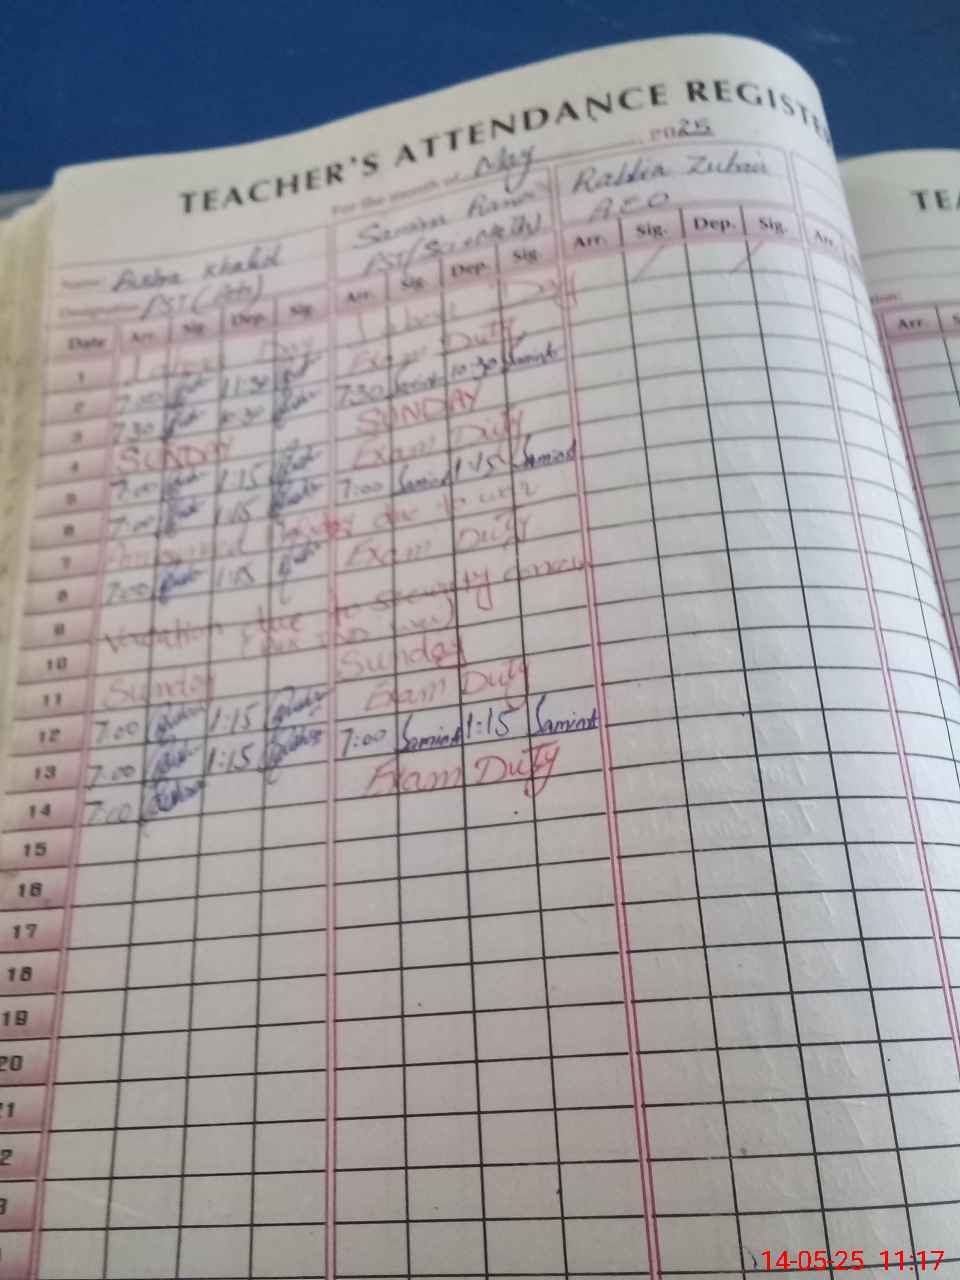 TEACHER'S ATTENDANCE REGISTE
For the month of May, 2025
Name: Bushra Khalid Samina Rabia Zubair
Designation: PST (Arts) PST (Sci-Math) AEO
Date Arr. Sig. Dep. Sig. Arr. Sig. Dep. Sig. Arr. Sig. Dep. Sig. Arr.
1 Labour Day Labour Day
2 7:00 11:30 Exam Duty
3 7:30 10:30 7:30 Samina 10:30 Samina
4 SUNDAY SUNDAY
5 7:00 1:15 Exam Duty
6 7:00 1:15 7:00 Samina 1:15 Samina
7 Announced Holiday due to war
8 7:00 1:15 Exam Duty
9 Vacation due to security concern
10 (Pak IND war)
11 Sunday Sunday
12 7:00 1:15 Exam Duty
13 7:00 1:15 7:00 Samina 1:15 Samina
14 7:00 Exam Duty
15
16
17
18
19
20
21
2
3
TE
Arr. S
14-05-25 11:17